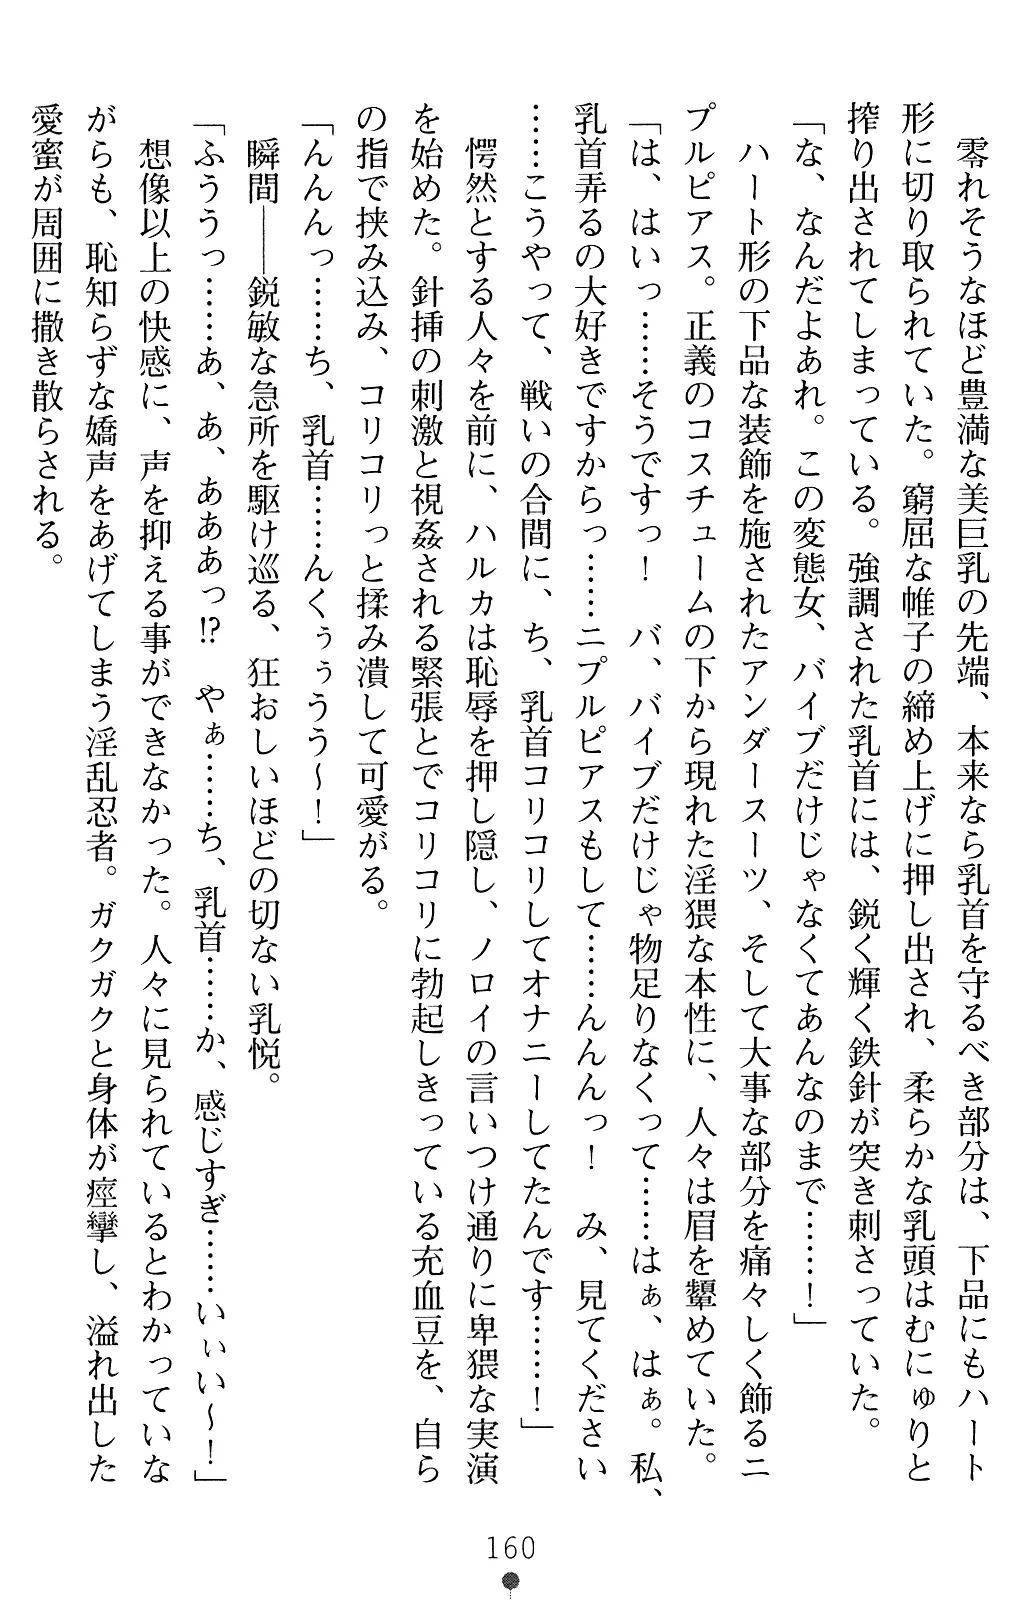 零れそうなほど豊満な美巨乳の先端、本来なら乳首を守るべき部分は、下品にもハート
形に切り取られていた。窮屈な帷子の締め上げに押し出され、柔らかな乳頭はむにゅりと
搾り出されてしまっている。強調された乳首には、鋭く輝く鉄針が突き刺さっていた。
「な、なんだよあれ。この変態女、バイブだけじゃなくてあんなのまで……！」
　ハート形の下品な装飾を施されたアンダースーツ、そして大事な部分を痛々しく飾るニ
プルピアス。正義のコスチュームの下から現れた淫猥な本性に、人々は眉を顰めていた。
「は、はいっ……そうですっ！　バ、バイブだけじゃ物足りなくって……はぁ、はぁ。私、
乳首弄るの大好きですからっ……ニプルピアスもして……んんんっ！　み、見てください
……こうやって、戦いの合間に、ち、乳首コリコリしてオナニーしてたんです……！」
　愕然とする人々を前に、ハルカは恥辱を押し隠し、ノロイの言いつけ通りに卑猥な実演
を始めた。針挿の刺激と視姦される緊張とでコリコリに勃起しきっている充血豆を、自ら
の指で挟み込み、コリコリっと揉み潰して可愛がる。
「んんんっ……ち、乳首……んくぅぅうう～！」
　瞬間――鋭敏な急所を駆け巡る、狂おしいほどの切ない乳悦。
「ふううっ……あ、あ、あああっ!?　やぁ……ち、乳首……か、感じすぎ……いぃい～！」
　想像以上の快感に、声を抑える事ができなかった。人々に見られているとわかっていな
がらも、恥知らずな嬌声をあげてしまう淫乱忍者。ガクガクと身体が痙攣し、溢れ出した
愛蜜が周囲に撒き散らされる。
160